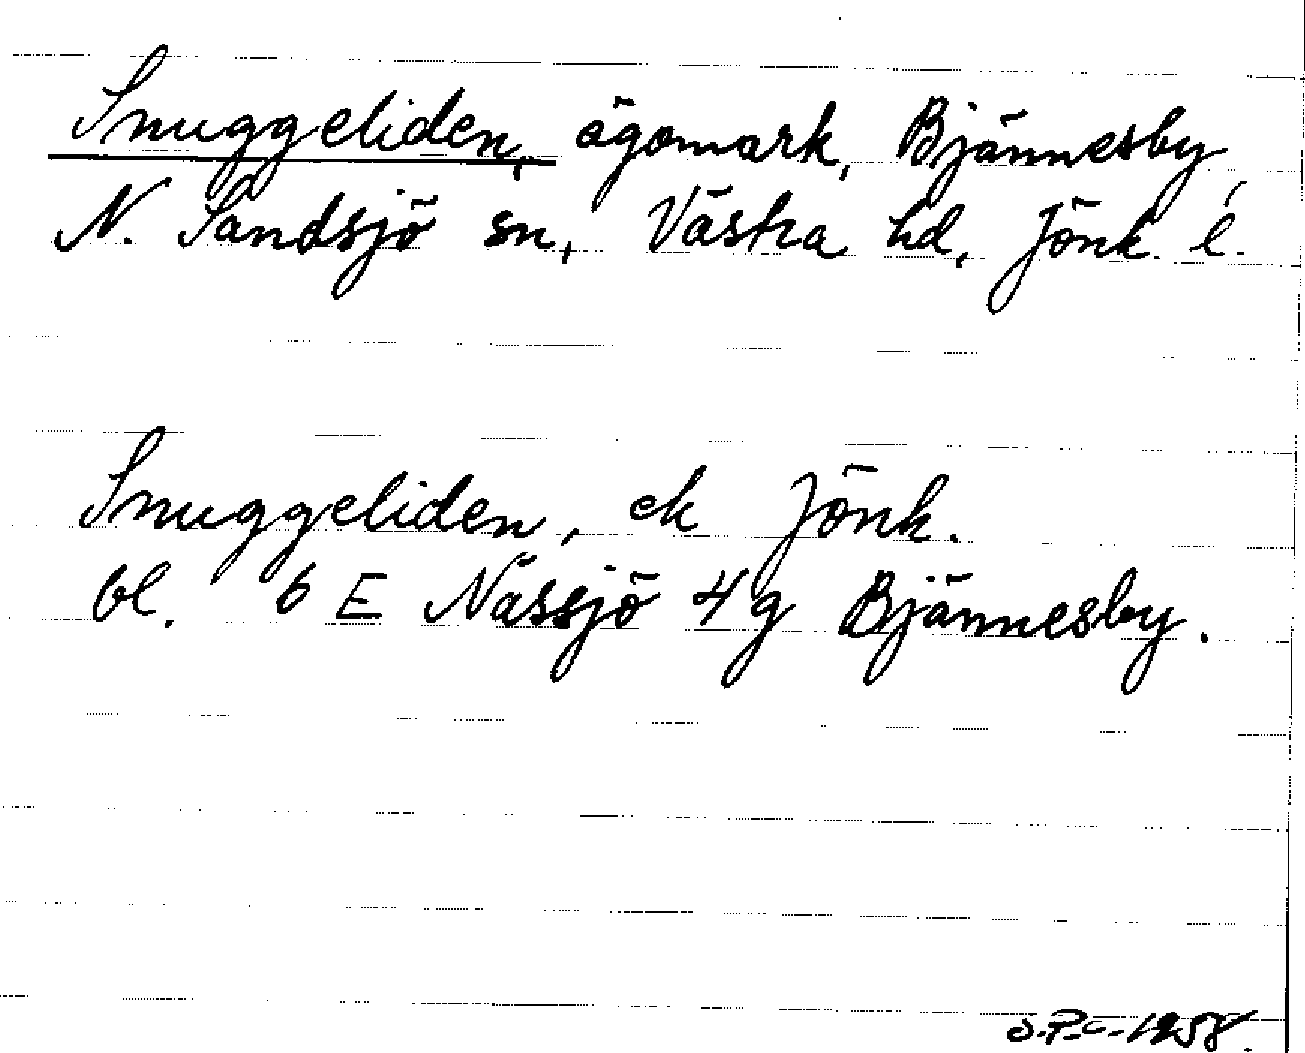 Snuggeliden, ägomark, Bjännesby,
N. Sandsjö sn, Västra hd, Jönk. l.
Snuggeliden, ek Jönk.
bl. 6 E Nässjö 4 g Bjännesby.
1958.